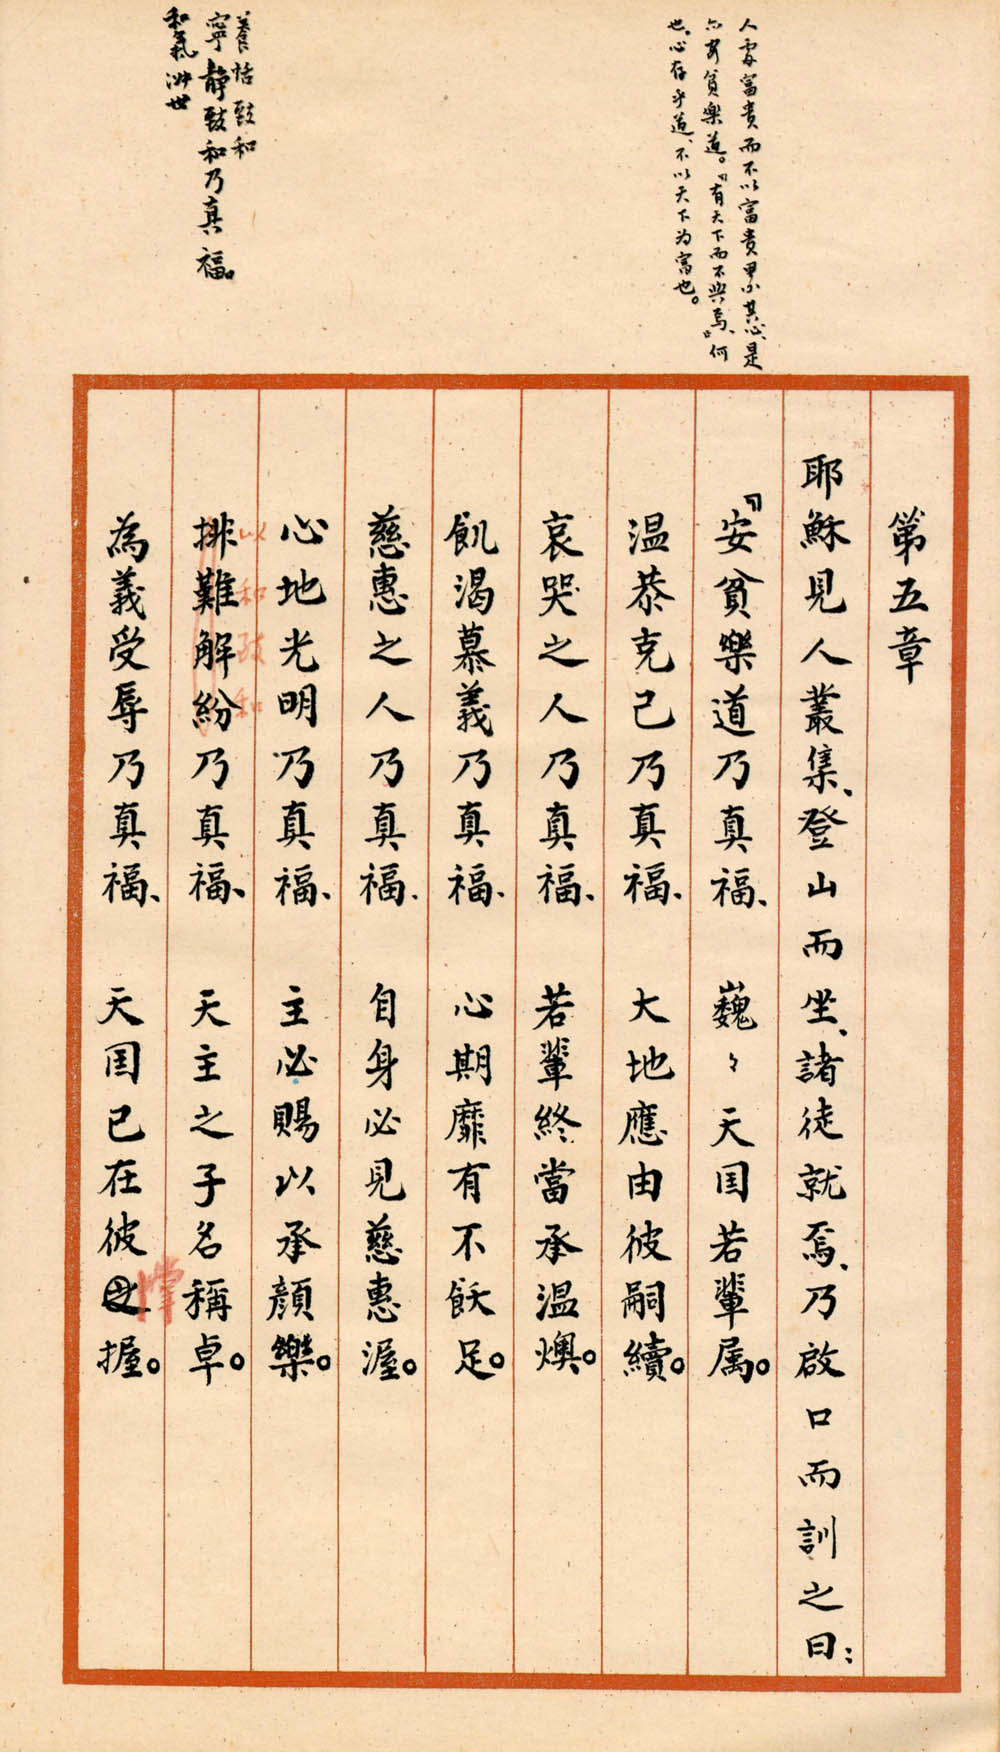 人處富貴而不以富貴卑小其心、是
亦安貧樂道。「有天下而不與焉」、何
也。心存乎道、不以天下为富也。
養恬致和
寧靜致和乃真福。
和氣
第五章
耶穌見人叢集、登山而坐、諸徒就焉、乃啟口而訓之曰：
「安貧樂道乃真福、巍〻天国若輩属。
温恭克己乃真福、大地應由彼嗣續。
哀哭之人乃真福、若輩終當承温燠。
飢渴慕義乃真福、心期靡有不飫足。
慈惠之人乃真福、自身必見慈惠渥。
心地光明乃真福、主必賜以承顏樂。
以和致和
排難解紛乃真福、天主之子名稱卓。
掌
為義受辱乃真福、天囯已在彼之握。